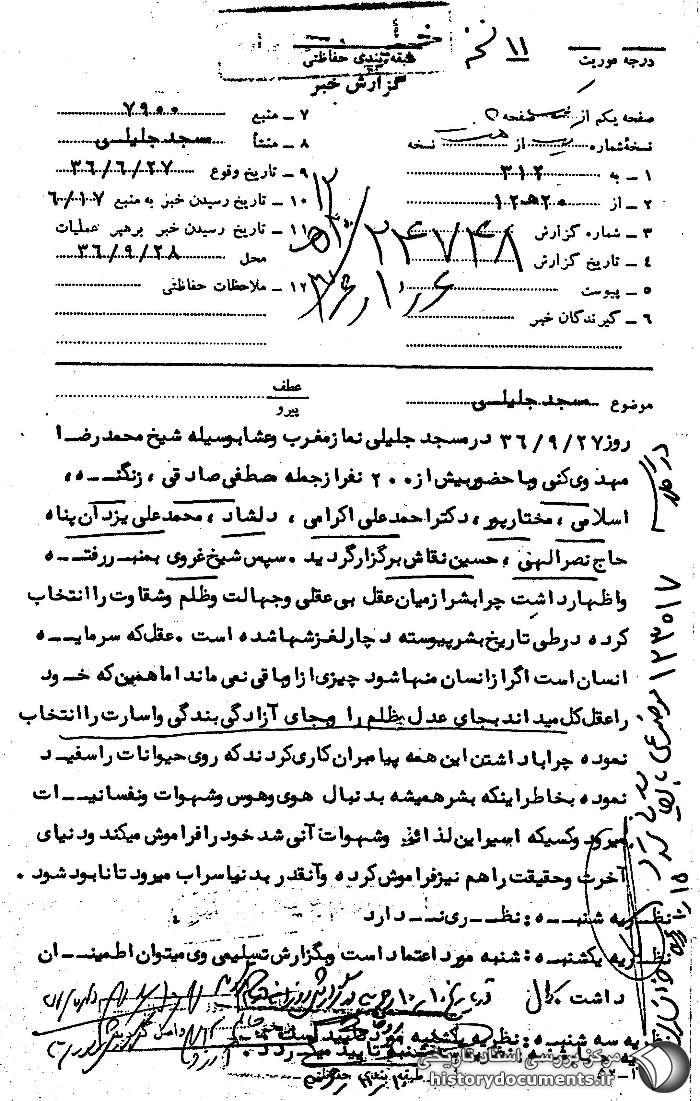 ۱۱
درجه فوریت
طبقه بندی حفاظتی
گزارش خبر
صفحه یکم از صفحه
نسخه شماره از نسخه
۱ ـ به ۳۱۲
۲ ـ از ۲۰ هـ ۱۲
۳ ـ شماره گزارش ۲۴۷۴۸
۴ ـ تاریخ گزارش
۵ ـ پیوست
۶ ـ گیرندگان خبر
۷ ـ منبع ۷۹۰۰
۸ ـ منشأ مسجد جلیلی
۹ ـ تاریخ وقوع ۳۶/۶/۲۷
۱۰ ـ تاریخ رسیدن خبر به منبع
۱۱ ـ تاریخ رسیدن خبر برهبر عملیات
محل ۳۶/۹/۲۸
۱۲ ـ ملاحظات حفاظتی
موضوع مسجد جلیلی
عطف
پیرو
روز ۳۶/۹/۲۷ در مسجد جلیلی نماز مغرب و عشا بوسیله شیخ محمد رضا
مهدوی کنی و با حضور بیش از ۲۰۰ نفر از جمله مصطفی صادقی ، زنگنه ،
اسلامی ، مختارپور ، دکتر احمد علی اکرامی ، دلشاد ، محمد علی یزدان پناه
حاج نصرالهی ، حسین نقاش برگزار گردید . سپس شیخ غروی بمنبر رفته
و اظهار داشت چرا بشر از میان عقل بی عقلی و جهالت و ظلم و شقاوت را انتخاب
کرده در طی تاریخ بشر پیوسته دچار لغزشها شده است . عقل که سرمایه
انسان است اگر از انسان منها شود چیزی از او باقی نمی ماند اما همین که خود
را عقل کل میداند بجای عدل بظلم را و بجای آزادگی بندگی و اسارت را انتخاب
نموده چرا با داشتن این همه پیامبران کاری کردند که روی حیوانات را سفید
نموده بخاطر اینکه بشر همیشه بدنبال هوی و هوس و شهوات و نفسانیات
میرود و کسیکه اسیر این لذائذ و شهوات آنی شد خود را فراموش میکند و دنیای
آخرت و حقیقت را هم نیز فراموش کرده و آنقدر بدنبال سراب میرود تا نابود شود .
نظریه شنبه : نظری ندارد
نظریه یکشنبه : شنبه مورد اعتماد است و بگزارش تسلیمی وی میتوان اطمینان
داشت
نظریه سه شنبه : نظریه یکشنبه مورد تایید است
تایید میگردد .
طبقه بندی حفاظتی
مرکز بررسی اسناد تاریخی
historydocuments.ir